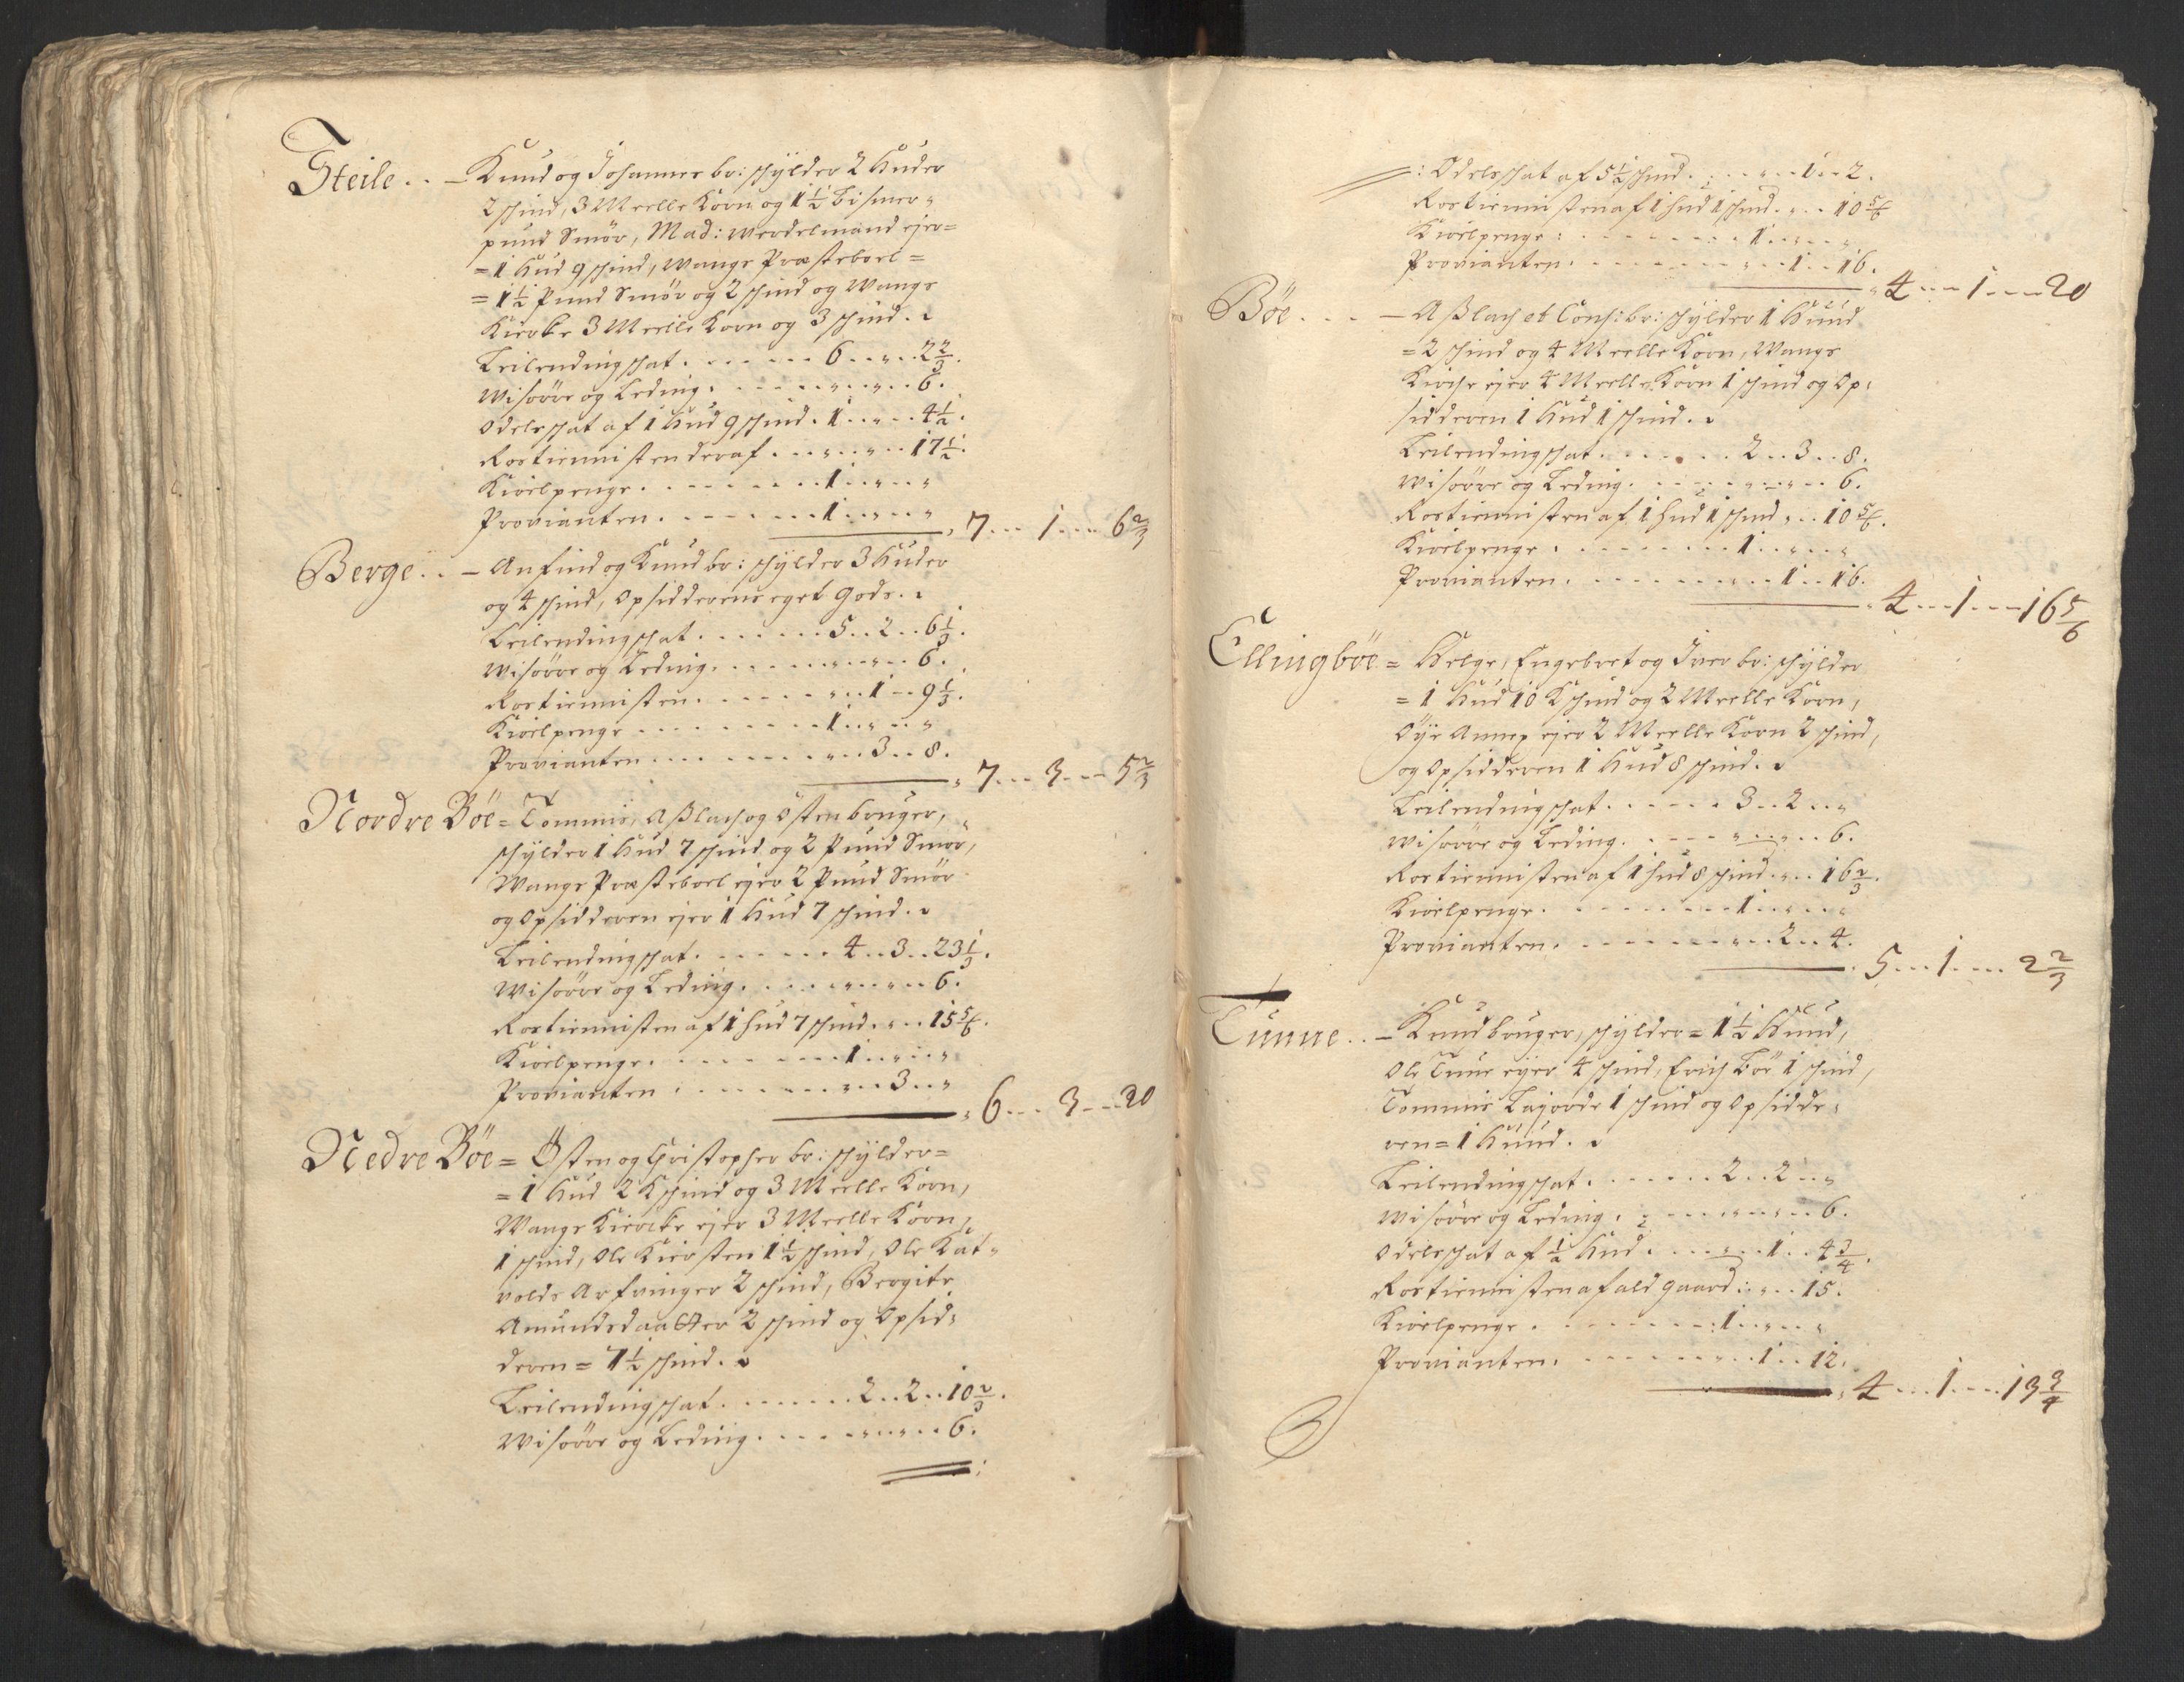 Steile . . – Knud og Johannes br: schylder 2 Huder
2 schind, 3 Meelle Korn og 1 ½ bismer„
pund Smør, Mad: Werdelmand ejer=
= 1 Hud 9 schind, Wangs Præsteboel =
= 1 ½ Pund Smør og 2 schind og Wangs
Kiercke 3 Meelle Korn og 3 schind. „
Leilendingschat . . . . . . 6 . . „ . . 2 ⅔.
Wisøøre og Leding . . . . . . „ . . „ . . 6.
Odelsschat af 1 Hud 9 schind . 1 . . „ . . 4 ½.
Rostienisten deraf . . . „ . . „ . . 17 ½.
Kiølpenge . . . . . . . . 1 . . „ . . „
Provianten . . . . . . . . 1 . . „ . . „
7 . . . 1 . . . 6 ⅔
Berge . . – Anfind og Knud br: schylder 3 Huder
og 4 schind, Opsidderens eget Gods. „
Leilendingschat . . . . . . 5 . . 2 . . 6 ⅓.
Wisøøre og Leding . . . . . . „ . . „ . . 6.
Rostienisten . . . . . . „ . . 1 . . 9 ⅓.
Kiølpenge . . . . . . . . 1 . . „ . . „
Provianten . . . . . . . . „ . . 3 . . 8.
7 . . . 3 . . . 5 ⅔
Nordre Bøe = Tommis, Aßlach og Østen bruger,
schylder 1 Hud 7 schind og 2 Pund Smør,
Wangs Præsteboel ejer 2 Pund Smør
og Opsidderen ejer 1 Hud 7 schind. „
Leilendingschat . . . . . . 4 . . 3 . . 23 ⅓.
Wisøøre og Leding . . . . . . „ . . „ . . 6.
Rostienisten af 1 hud 7 schind . „ . . 15 ⅚.
Kiølpenge . . . . . . . . 1 . . „ . . „
Provianten . . . . . . . . „ . . 3 . . „
6 . . . 3 . . . 20
Nedre Bøe = Østen og Christopher br: schylder =
= 1 Hud 2 Kschind og 3 Meelle Korn,
Wangs Kiercke ejer 3 Meelle Korn,
1 schind, Ole Kiersten 1 ½ schind, Ole Kat„
volds Arfvinger 2 schind, Bergite
Amundsdaatter 2 schind og Opsid„
deren = 7 ½ schind. „
Leilendingschat . . . . . . 2 . . 2 . . 10 ⅔.
Wisøøre og Leding . . . . . . „ . . „ . . 6.
: Odelsschat af 5 ½ schind . . . „ . . 1 . . 2.
Rostienisten af 1 hud 1 schind . „ . . 10 ⅚
Kiølpenge : . . . . . . . 1 . . „ . . „
Provianten . . . . . . . . „ . . 1 . . 16.
4 . . . 1 . . . 20
Bøe . . . – Aßlach et Cons: br: schylder 1 Huud
= 2 schind og 4 Meelle Korn, Wangs
Kirche ejer 4 Meelle Korn 1 schind og Op„
sidderen 1 Hud 1 schind. „
Leilendingschat . . . . . . 2 . . 3 . . 8.
Wisøøre og Leding . . . . . . „ . . „ . . 6.
Rostienisten af 1 hud 1 schind „ . . 10 ⅚.
Kiølpenge . . . . . . . . 1 . . „ . . „
Provianten . . . . . . . . „ . . 1 . . 16.
4 . . . 1 . . . 16 ⅚
Ellingbøe = Helge, Engebret og Iver br: schylder
= 1 Hud 10 Kschind og 2 Meelle Korn,
Øye Annex ejer 2 Meelle Korn 2 schind,
og Opsidderen 1 Hud 8 schind. „
Leilendingschat . . . . . . 3 . . 2 . . „
Wisøøre og Leding . . . . . . „ . . „ . . 6.
Rostienisten af 1 hud 8 schind . „ . . 16 ⅔.
Kiølpenge . . . . . . . . 1 . . „ . . „
Provianten . . . . . . . . „ . . 2 . . 4.
5 . . . 1 . . . 2 ⅔
Tunne . . – Knud bruger, schylder = 1 ½ Huud,
Ole Tune ejer 4 schind, Erich Bøe 1 schind,
Tommis Lajorde 1 schind og Opsidde„
ren = 1 Huud. „
Leilendingschat . . . . . . 2 . . 2 . . „
Wisøøre og Leding . . . . . . „ . . „ . . 6.
Odelsschat af ½ Hud . . . . „ . . 1 . . 4 ¾.
Rostienisten af ald gaard : „ . . 15.
Kiølpenge . . . . . . . . 1 . . „ . . „
Provianten . . . . . . . . „ . . 1 . . 12.
4 . . . 1 . . . 13 ¾